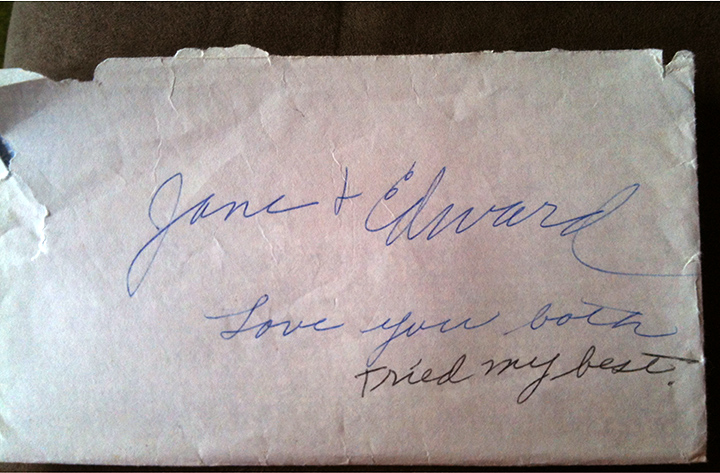 Jane + Edward
Love you both
Tried my best.